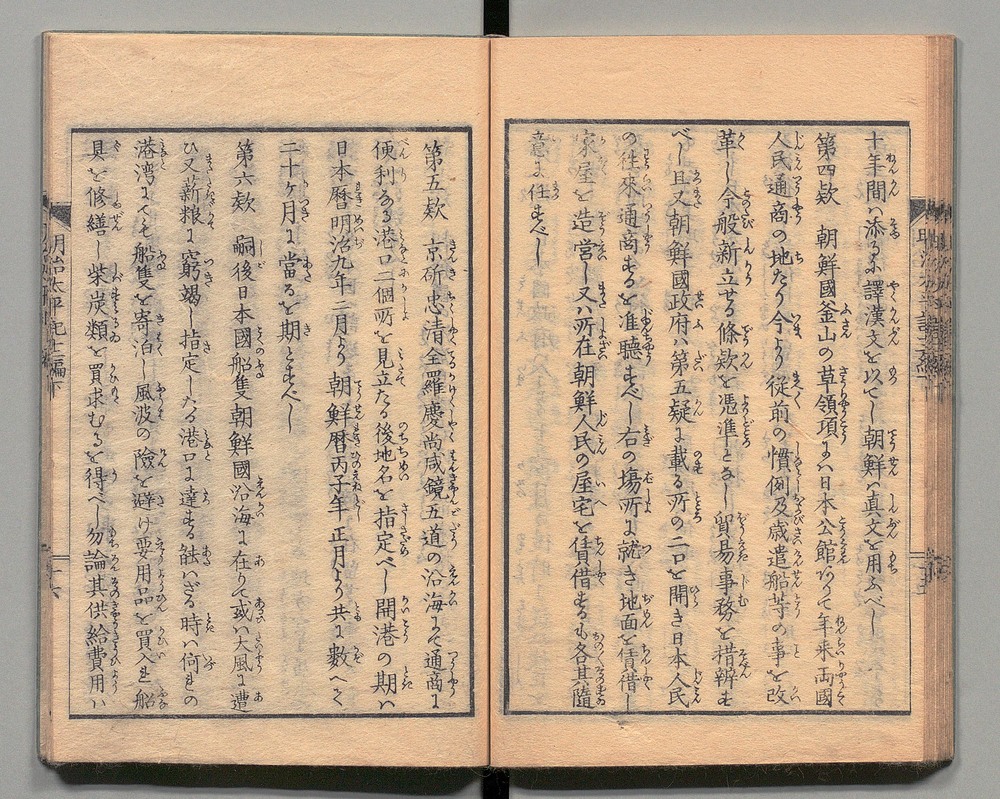 十年間ハ添るに譯漢文を以てし朝鮮ハ真文を用ふべし
第四欵 朝鮮國釜山の草領項にハ日本公館ありて年来両國
人民通商の地たり今より従前の慣例及歳遣船等の事を改
革し今般新立せる條欵を憑準となし貿易事務を措辨す
べし且又朝鮮國政府ハ第五疑に載る所の二口を開き日本人民
の徃來通商するを准聴すべし右の場所に就き地面を賃借し
家屋を造営し又ハ所在朝鮮人民の屋宅を賃借するも各其隨
意に任すべし
第五欵 京圻忠清全羅慶尚咸鏡五道の沿海にて通商に
便利ある港口二個所を見立たる後地名を指定べし開港の期ハ
日本暦明治九年二月より朝鮮暦丙子年正月より共に數へて
二十ヶ月に當るを期とすべし
第六欵 嗣後日本國船隻朝鮮國沿海に在りて或ハ大風に遭
ひ又薪粮に窮竭し指定したる港口に達する能ハざる時ハ何れの
港湾にても船隻を寄泊し風波の險を避け要用品を買入れ船
具を修繕し柴炭類を買求むるを得べし勿論其供給費用ハ
明治太平記十二編下